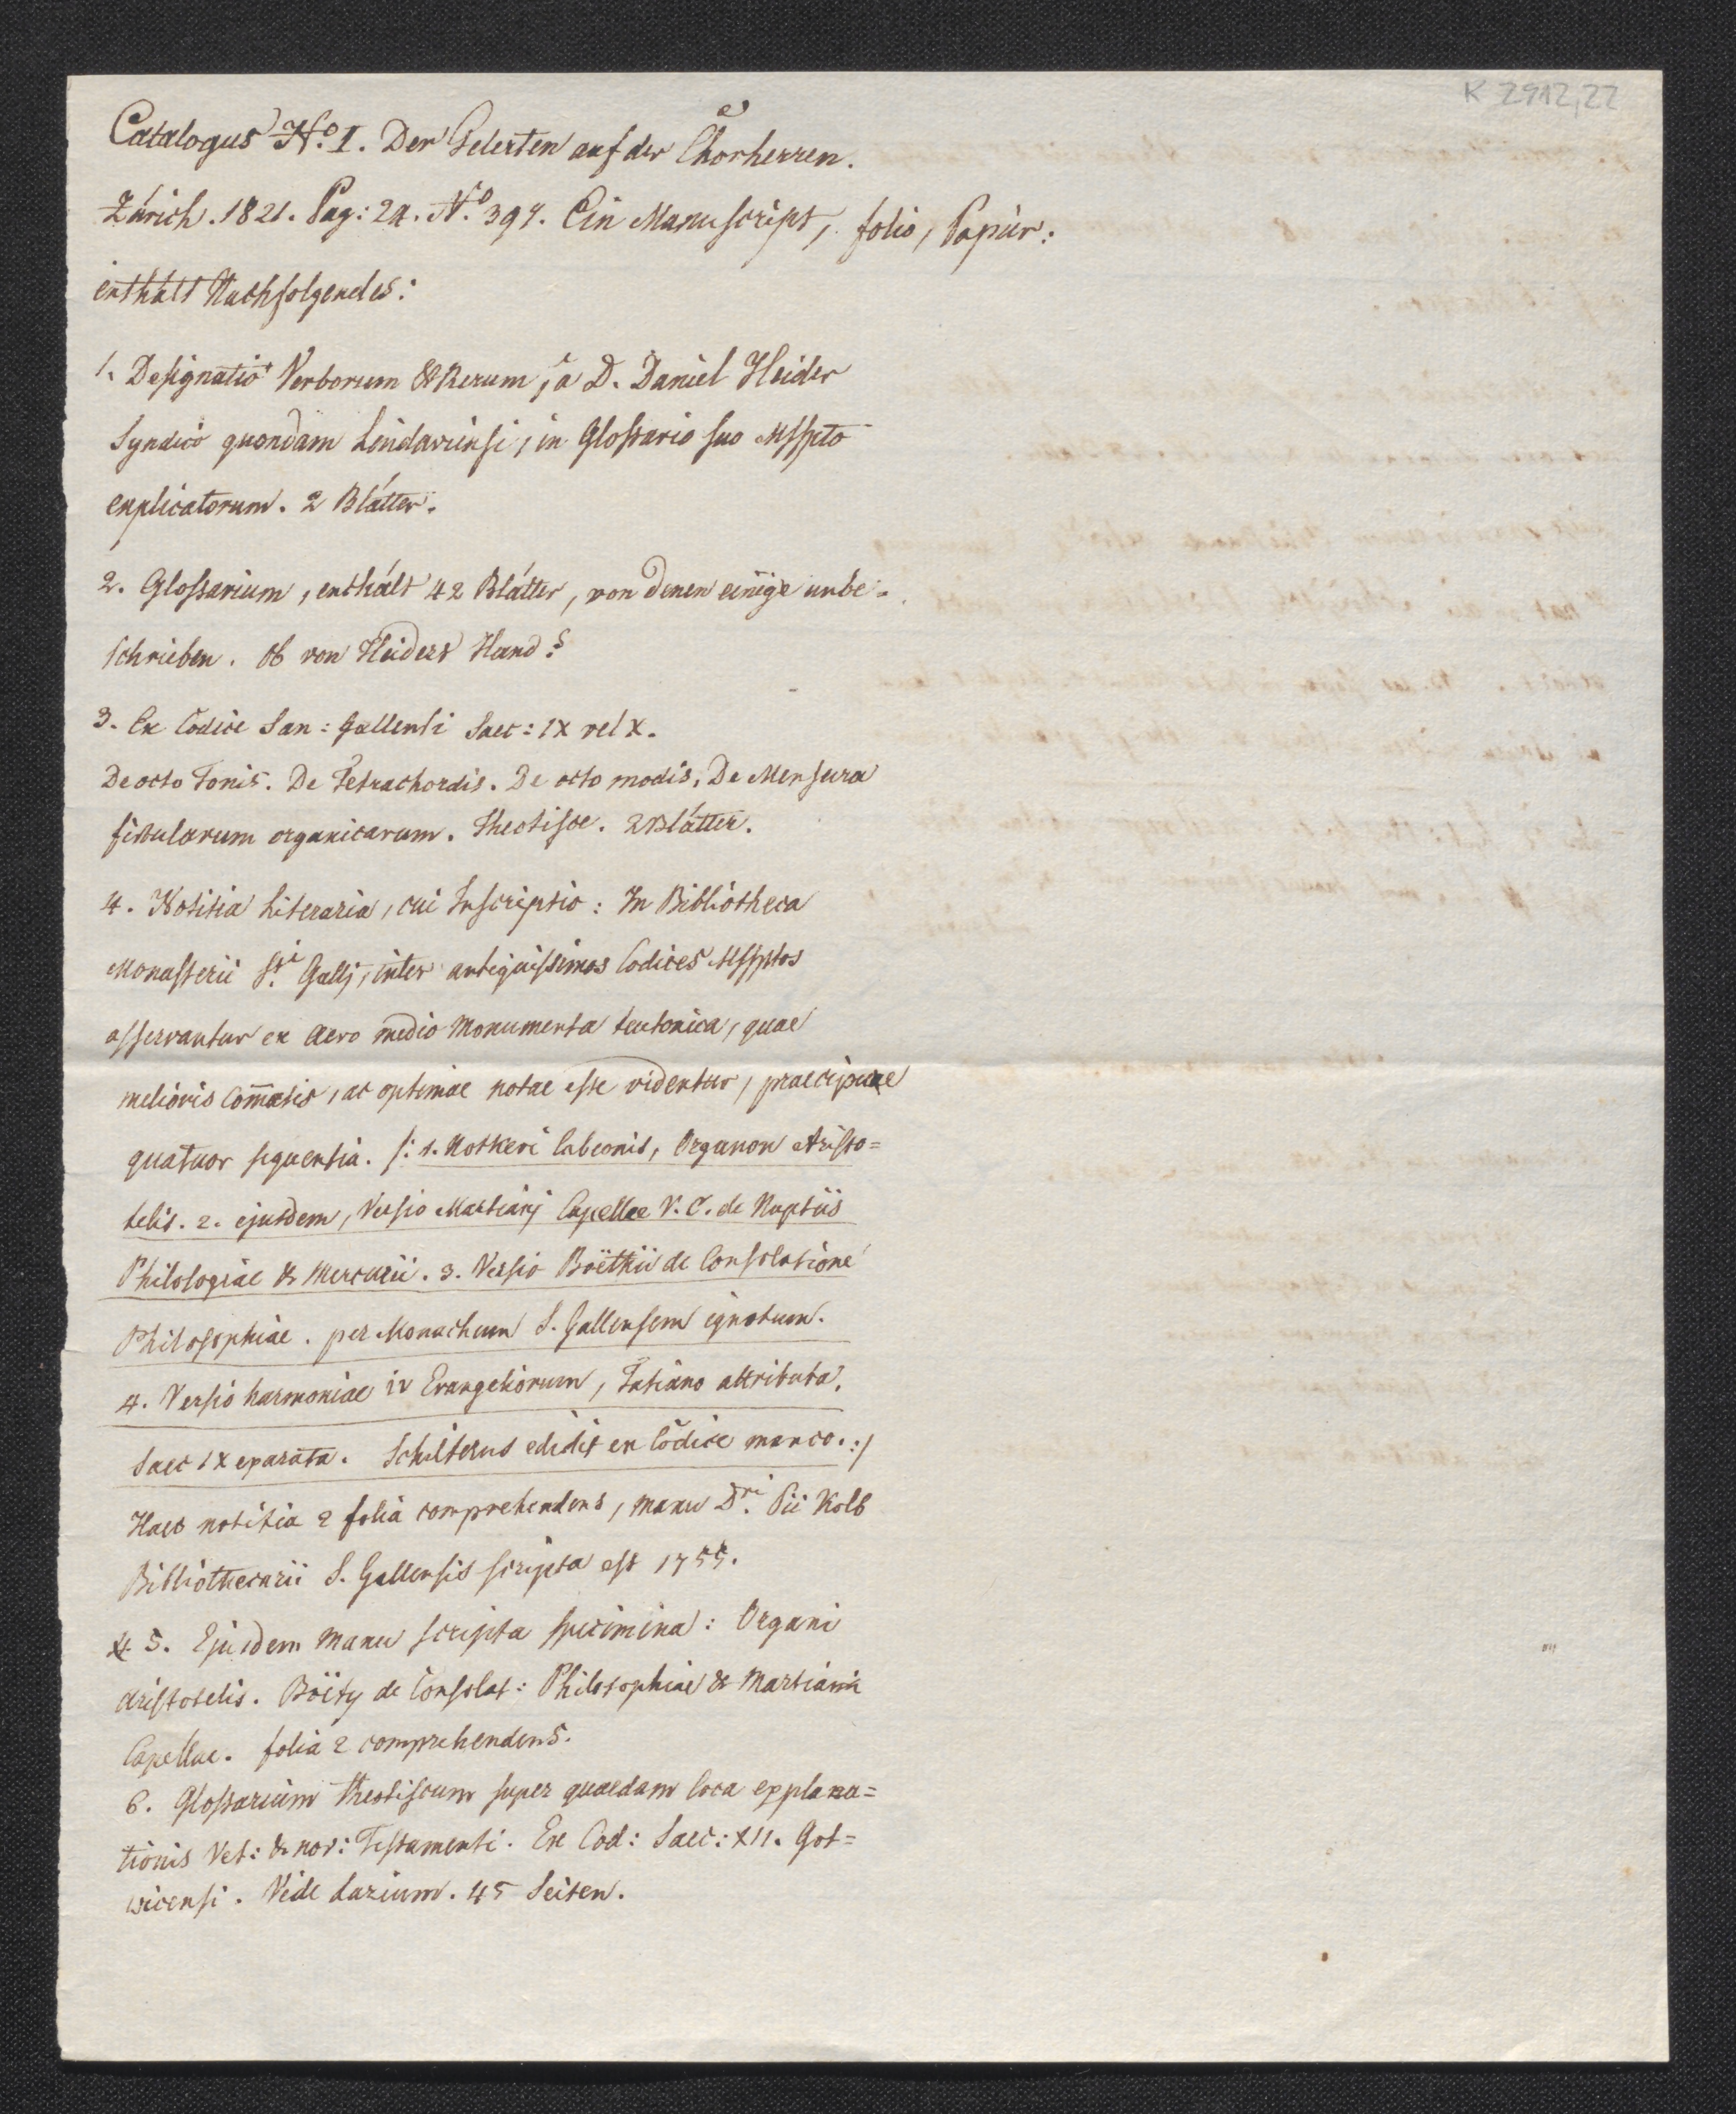 K 2912,22
Catalogus No. I. Der Gelerten auf der Chorherren.
Zúrich. 1821. Pag: 24. No. 397. Ein Manuscript, folio, Papúr:
enthált Nachfolgendes:
1. Designatio Verborum & Rerum, a D. Daniel Heider
Syndico quondam Lindaviensi, in Glossario suo Msspto
explicatorum. 2 Blátter.
2. Glossarium, enthált 42 Blátter, von denen einige unbe=
schrieben. Ob von Heiders Hand?
3. Ex Codice San: Gallensi Saec: IX vel X.
De octo Tonis. De Tetrachordis. De octo modis, De Mensura
fistularum organicarum. Theotisce. 2 Blátter.
4. Notitia Literaria, cui Inscriptio: In Bibliotheca
Monasterii Sti. Gallj, inter antiquissimos Codices Mssptos
asservantur ex aevo medio Monumenta teutonica, quae
melioris Com̄atis, ac optimae notae esse videntur, praecipue
quatuor sequentia. /: 1. Notkeri Labeonis, Organon Aristo=
telis. 2. ejusdem, Versio Martianj Capellae V. C. de Nuptiis
Philologiae & Mercurii. 3. Versio Boëthii de Consolatione
Philosophiae. per Monachum S. Gallensem ignotum.
4. Versio harmoniae IV Evangeliorum, Tatiano attributa,
Saec IX exarata. Schilterus edidit ex Codice manco. :/
Haec notitia 2 folia comprehendens, manu Dri. Pii Kolb
Bibliothecarii S. Gallensis scripta est 1755.
4 5. Ejusdem manu scripta specimina: Organi
Aristotelis. Boëty de Consolat: Philosophiae & Martiani
Capellae. folia 2 comprehendens.
6. Glossarium theotiscum super quaedam loca explana=
tionis Vet: & nov: Testamenti. Ex Cod: Saec: XII. Got=
wicensi. Vide Lazium. 45 Seiten.